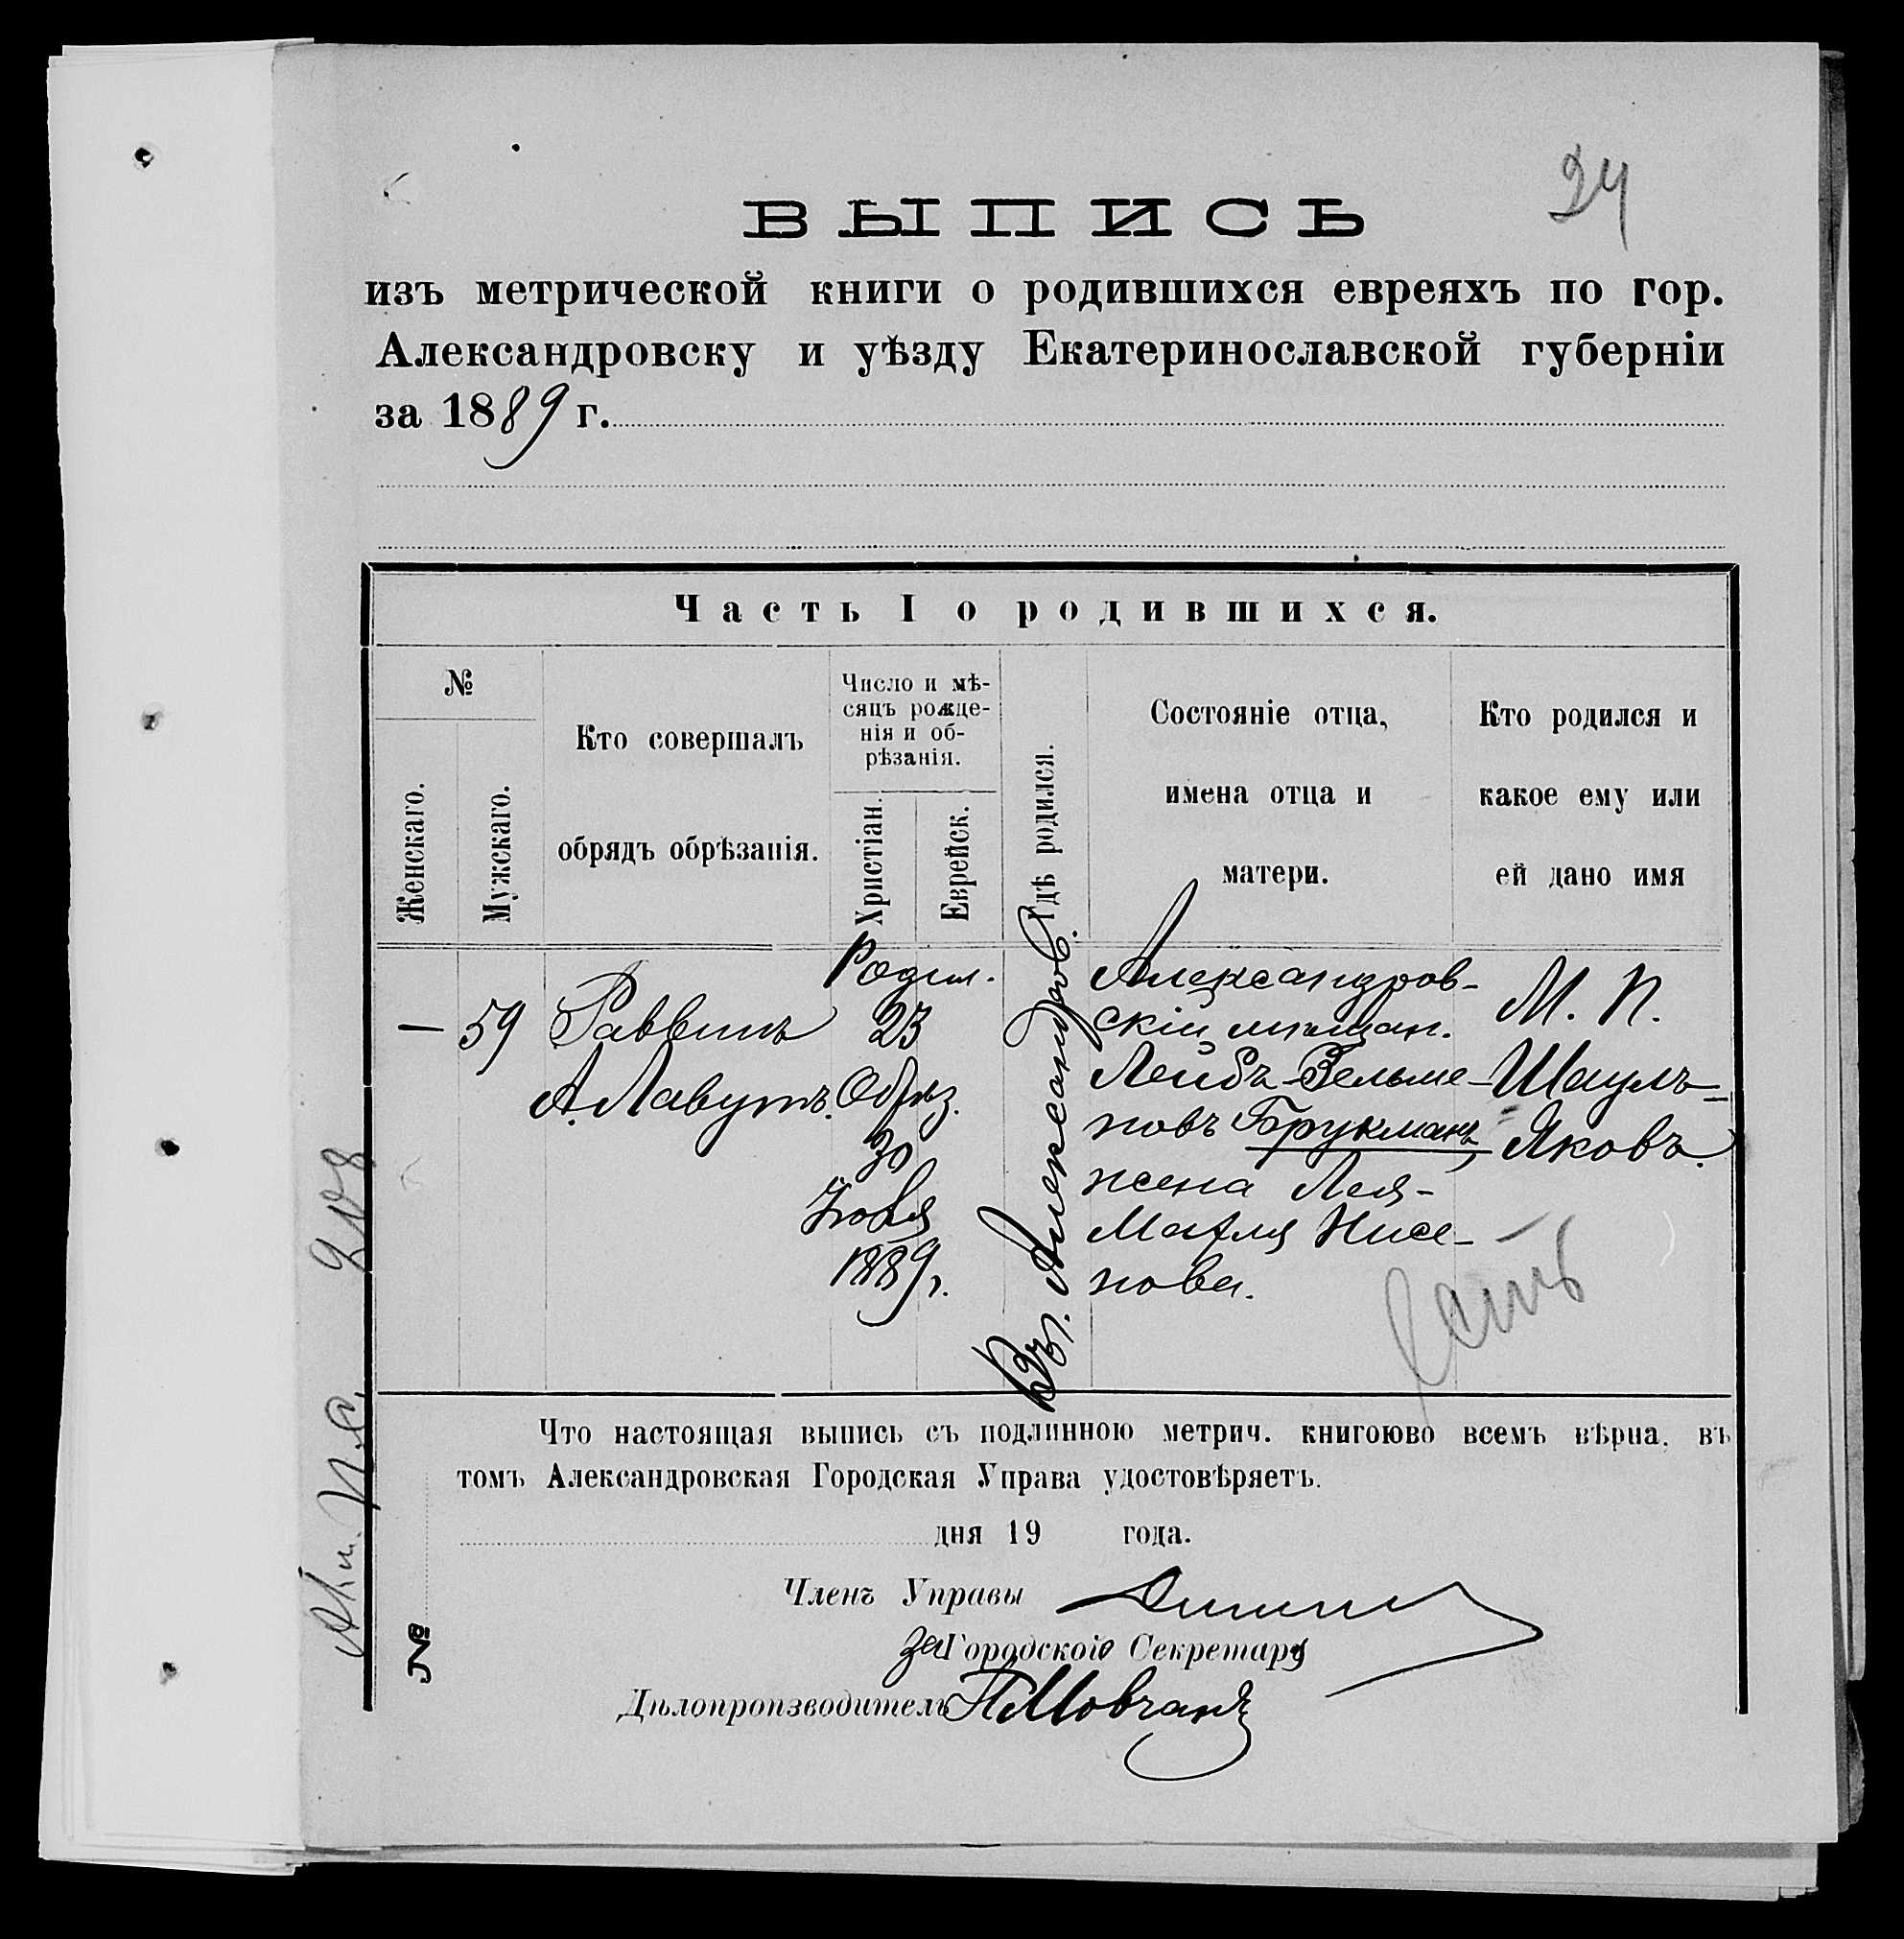 24
ВЫПИСЬ
изъ метрической книги о родившихся евреяхъ по гор.
Александровску и уѣзду Екатеринославской губерніи
за 1889 г.
Часть I о родившихся.
№
Женскаго.
Мужскаго.
Кто совершалъ
обрядъ обрѣзанія.
Число и мѣ-
сяцъ рожде-
нія и об-
рѣзанія.
Христіан.
Еврейск.
Гдѣ родился.
Состояніе отца,
имена отца и
матери.
Кто родился и
какое ему или
ей дано имя
—
59
Раввинъ
А. Лавутъ.
Родил.
23
Обрѣз.
30
1889 г.
Въ г. Александров.
Александров-
скій мѣщан.
Лейбъ Зельме-
новъ Брукманъ,
жена Лея-
Матля Нисе-
нова.
М. П.
Шаулъ-
Яковъ.
Что настоящая выпись съ подлинною метрич. книгоюво всемъ вѣрна, въ
томъ Александровская Городская Управа удостовѣряетъ.
дня 19 года.
Членъ Управы
за Городского Секретаря
Дѣлопроизводитель Мовчанъ
№